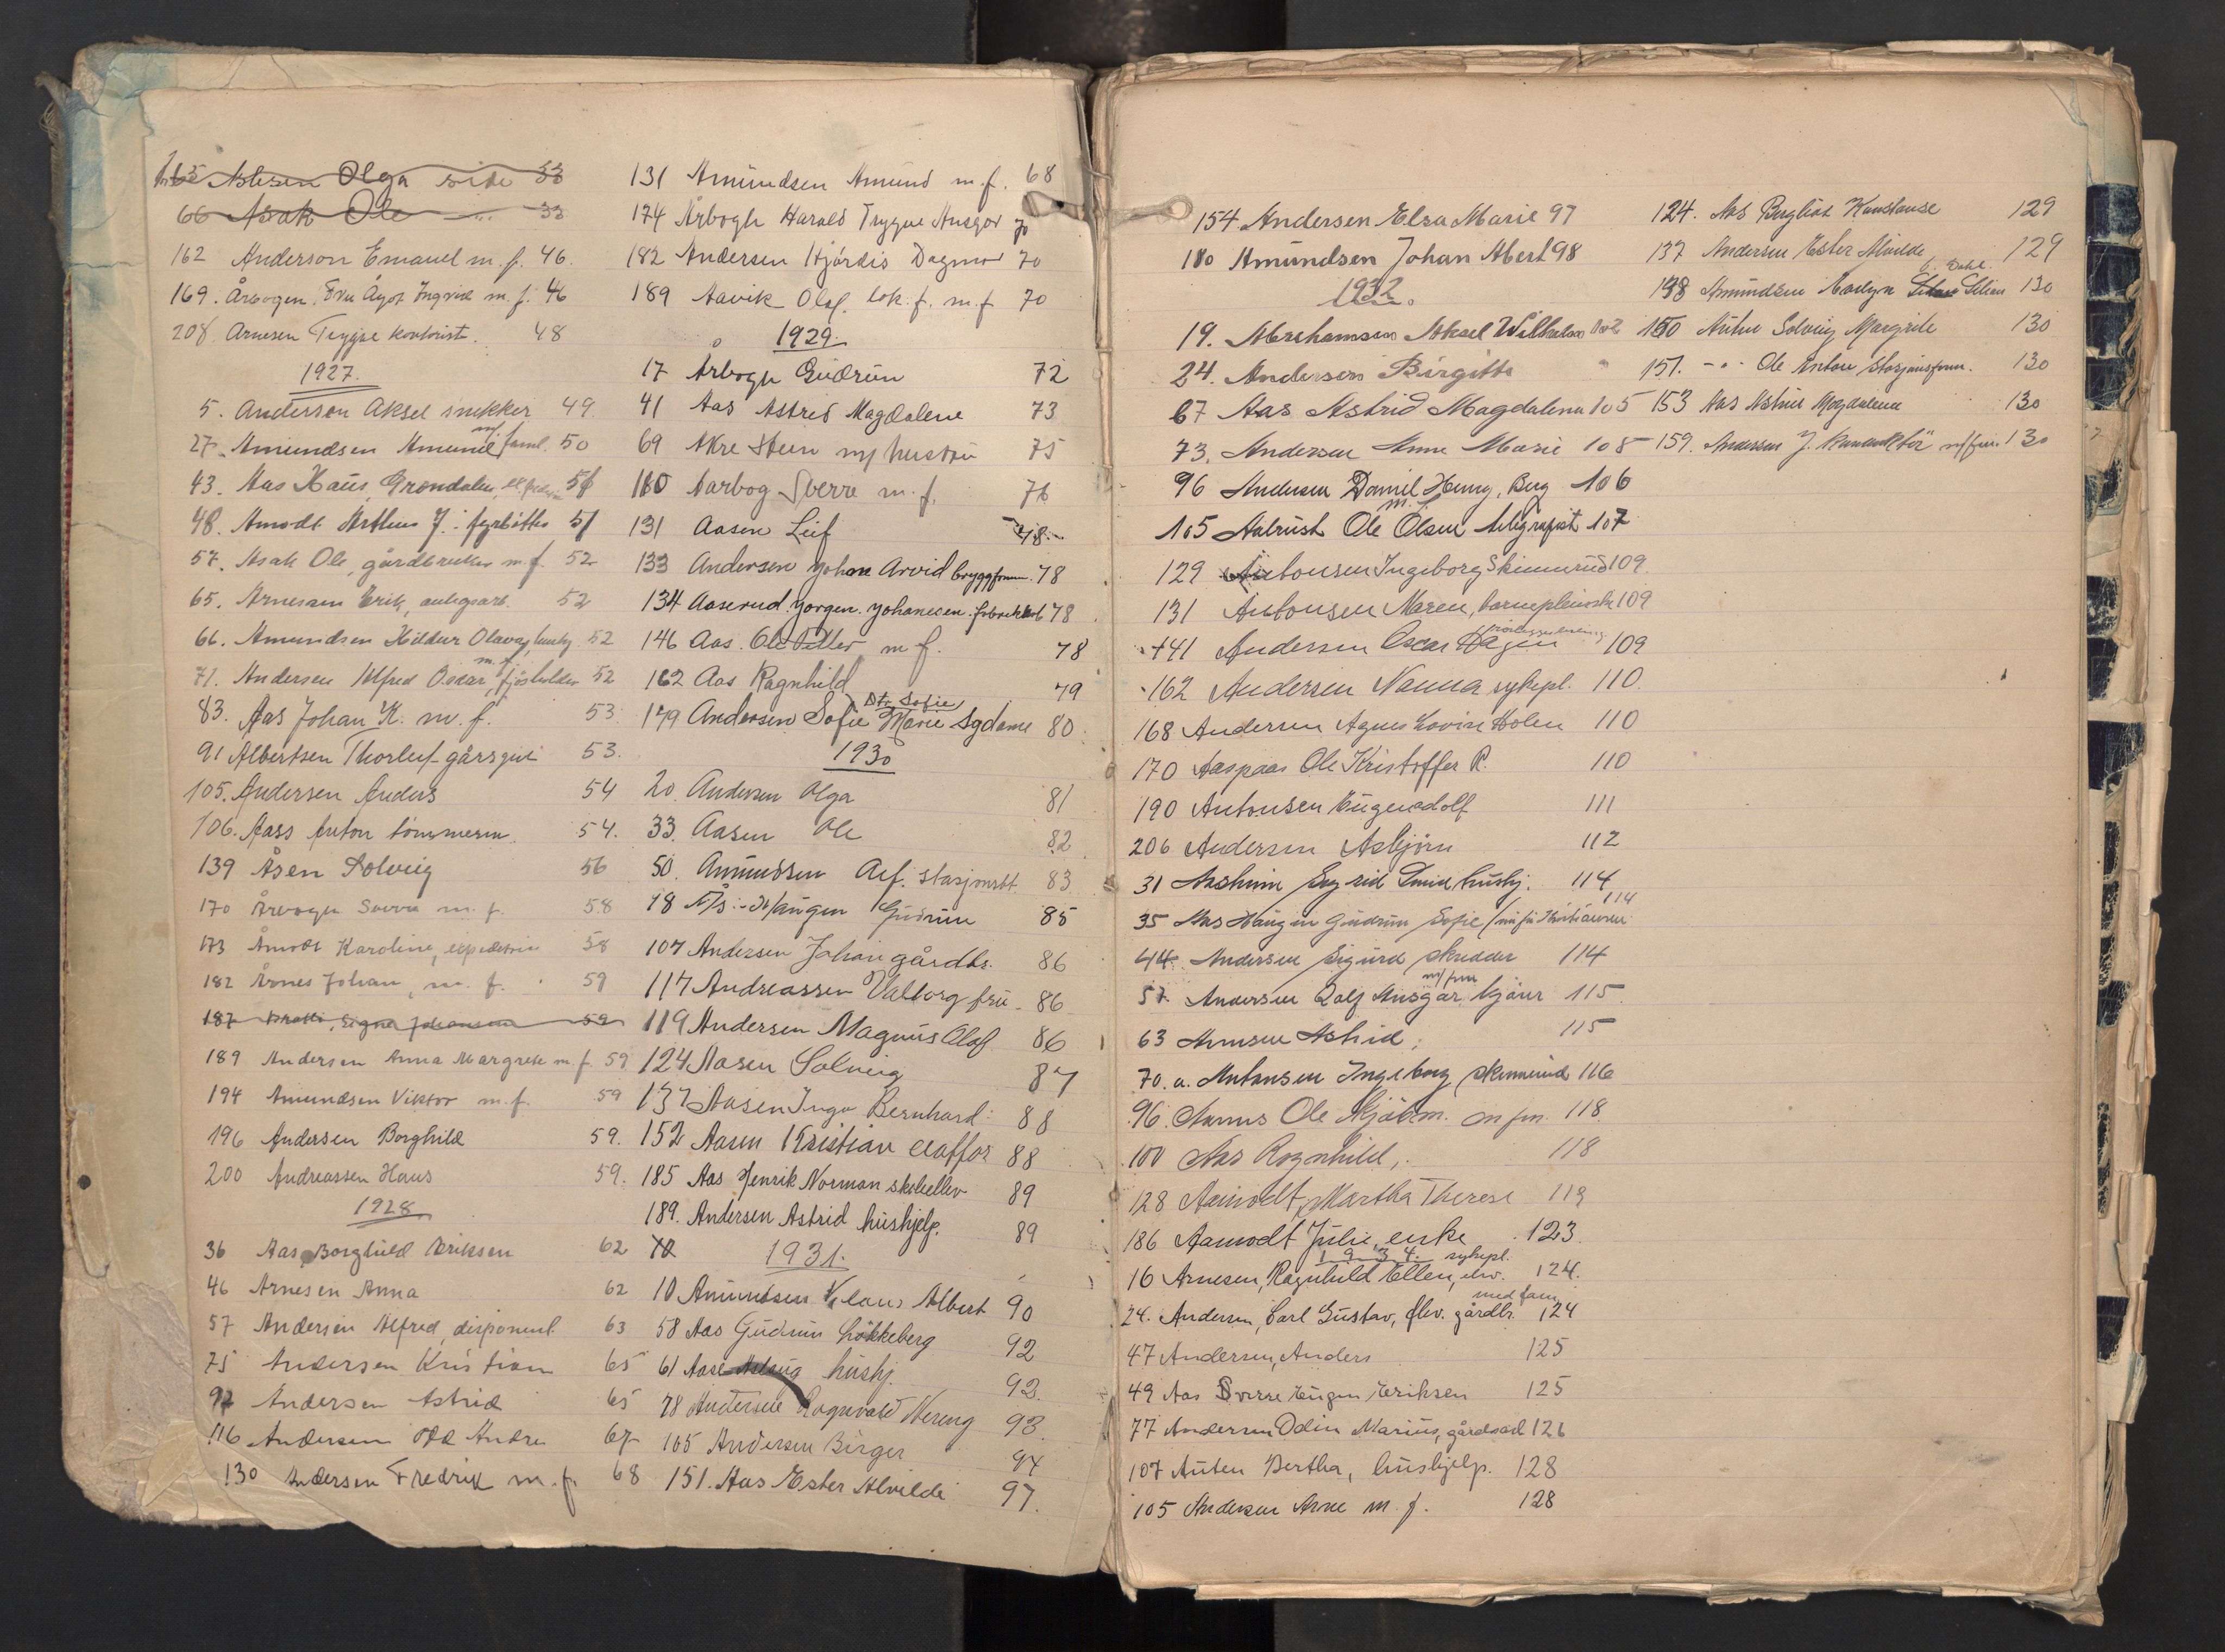 65 Olga side 33
66 Asak Ole 33
162 Anderson Emanuel m. f. 46.
169. Årbogen, Fru Ågot Ingrid m. f. 46
208 Arnesen Trygve kontorist. 48
1927.
5. Anderson Aksel snekker 49
m/
27. Amundsen Amund faml. 50
43. Aas Hans, Grøndalen, 51
48. Amodt Arthur J. fyrbøter 51
57. Asak Ole, gårdbruker m. f. 52
65. Arnesen Erik, anlegsarb. 52
66. Amundsen Hildur Olava, hushj. 52
m. f.
71. Andersen Alfred Oscar, fjøsholder 52
83. Aas Johan K. m. f. 53
91 Albertsen Thorleif gårsgut 53.
105. Andersen Anders 54
106. Aass Anton tømmerm. 54.
139 Åsen Solveig 56
170 Årbogen Sverre m. f. 58
173 Åmodt Karoline, 58
182 Årnes Johan, m. f. 59
187 Signe Johansen 59
189 Andersen Anna Margrete m. f. 59
194 Amundsen Viktor m. f. 59
196 Andersen Borghild 59.
200 Andreassen Hans 59.
1928
36 Aas, Borghild Eriksen 62
46 Arnesen Anna 62
57 Andersen Alfred, disponent 63
75 Andersen Kristian 65
97 Andersen Astrid 65
116 Andersen Odd Andre 67
130 Andersen Fredrik m. f. 68
131 Amundsen Amund m. f. 68
174 Årbogh Harald Trygve Ansgar 70
182 Andersen Hjördis Dagmar 70
189 Aavik Olaf. lok. f. m. f 70
1929.
17 Årbogh Gudrun 72
41 Aas Astrid Magdalene 73
69 Akre Stein m/hustru 75
110 Aarbog Sverre m. f. 76
131 Aasen Leif 78
133 Andersen Johan Arvid bryggform. 78
134 Aaserud Jörgen Johanesen 78
146 Aas. Ole Petter m f. 78
162 Aas Ragnhild 79
Sofie
179 Andersen Sofie Marie sydame 80
1930
20. Andersen Olga 81
33. Aasen Ole 82
50. Amundsen Alf. stasjonsbt. 83
78 Ås-Haugen Gudrun 85
107 Andersen Johan gårdbr. 86
117 Andreassen Valborg fru 86
119 Andersen Magnus Olaf 86
124 Aasen Solveig 87
137 Aasen Inga Bernhard 88
152 Aasen Kristian 88
185 Aas Henrik Norman skoleelev 89
189. Andersen Astrid hushjelp. 89
1931.
10 Amundsen Klaus Albert 90
58 Aas Gudrun Løkkeberg 92
61 Aase Aslaug hushj. 92.
78 Andersen Ragnvald Nereng 93.
105 Andersen Birger 94
151. Aas Ester Alvilde 97.
154. Andersen Elsa Marie 97
180 Amundsen Johan Albert 98
1932.
19. Abrahamsen Aksel Wilhelm 102
24. Andersen Birgitte "
67 Aas Astrid Magdalena 105
73. Andersen Anne Marie 105
96 Andersen Daniel Henry, Berg 106
m. f.
105 Aalrust Ole Olsen telegrafist 107
129 Antonsen Ingeborg Skinnerud 109
131 Antonsen Maren, barnepleierske 109
141 Andersen Oscar Hagen 109
162 Andersen Nanna sykepl. 110.
168 Andersen Agnes Lovise Holen 110
170 Aaspaas Ole Kristoffer R. 110
190 Antonsen Eugenadolf 111
206 Andersen Asbjørn 112
31 Aasheim Sigrid hushj. 114
114
35 Aas Haugen Gudrun Sofie
44. Andersen Sigurd skredder 114
m/fru
57. Andersen Rolf Ansgar 115
63 Arnesen Astrid, 115
70. a. Antonsen Ingeborg Skinnerud 116
96. Aarnes Ole m. fm. 118
100 Aas Ragnhild, 118
128 Aamodt, Martha Therese 119
186 Aamodt Julie, enke 123
1934. sykepl.
16 Arnesen, Ragnhild Ellen, elev. 124.
med fam
24. Andersen, Carl Gustav, flev. gårdbr. 124
47 Andersen, Anders 125
49 Aas Sverre Eugen Eriksen 125
77 Andersen Odin Marius, gårdsarb 126
107 Auten Bertha, hushjelp. 128
105 Andersen Arne m. f. 128
124. Aas Bergliot Konstanse 129
137 Andersen Ester Alvilde 129
f. Dahl.
138 Amundsen Evelyn Lilian 130
150 Auten Solveig Margrete 130
151. -"- Ole Anton stasjonsform. 130
153 Aas Astrid Magdalena 130
159. Andersen J. m/fru. 130